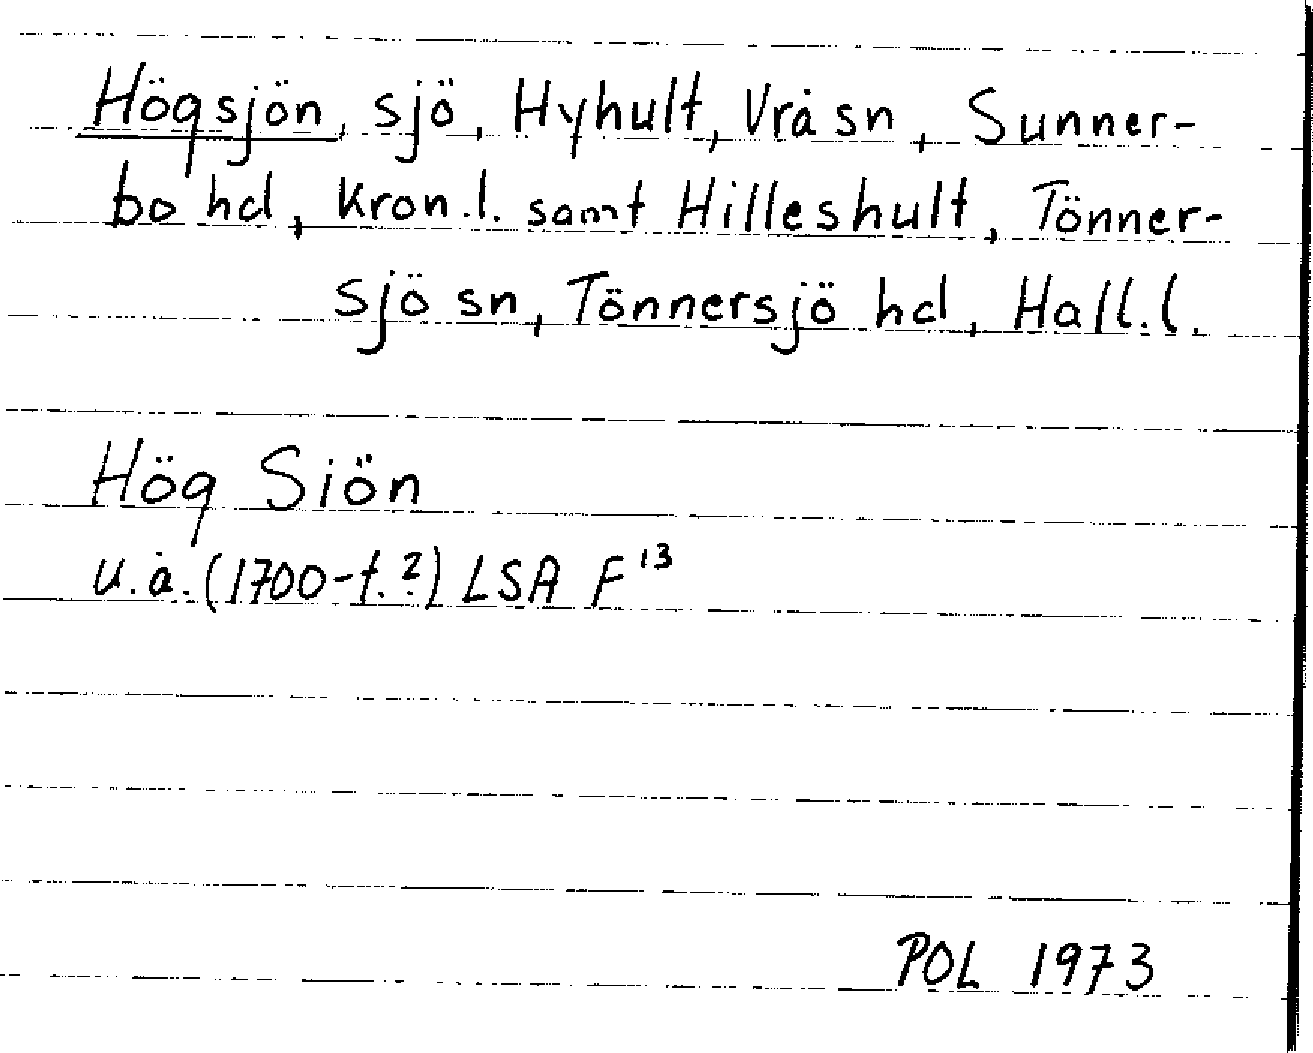 Högsjön, sjö, Hyhult, Vrå sn, Sunner-
bo hd, Kron.l. samt Hilleshult, Tönner-
sjö sn, Tönnersjö hd, Hall.l.
Hög Siön
u.å. (1700-t.?) LSA F¹³
POL 1973